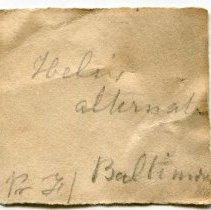 Helix
alternata
Baltimore
B. F.